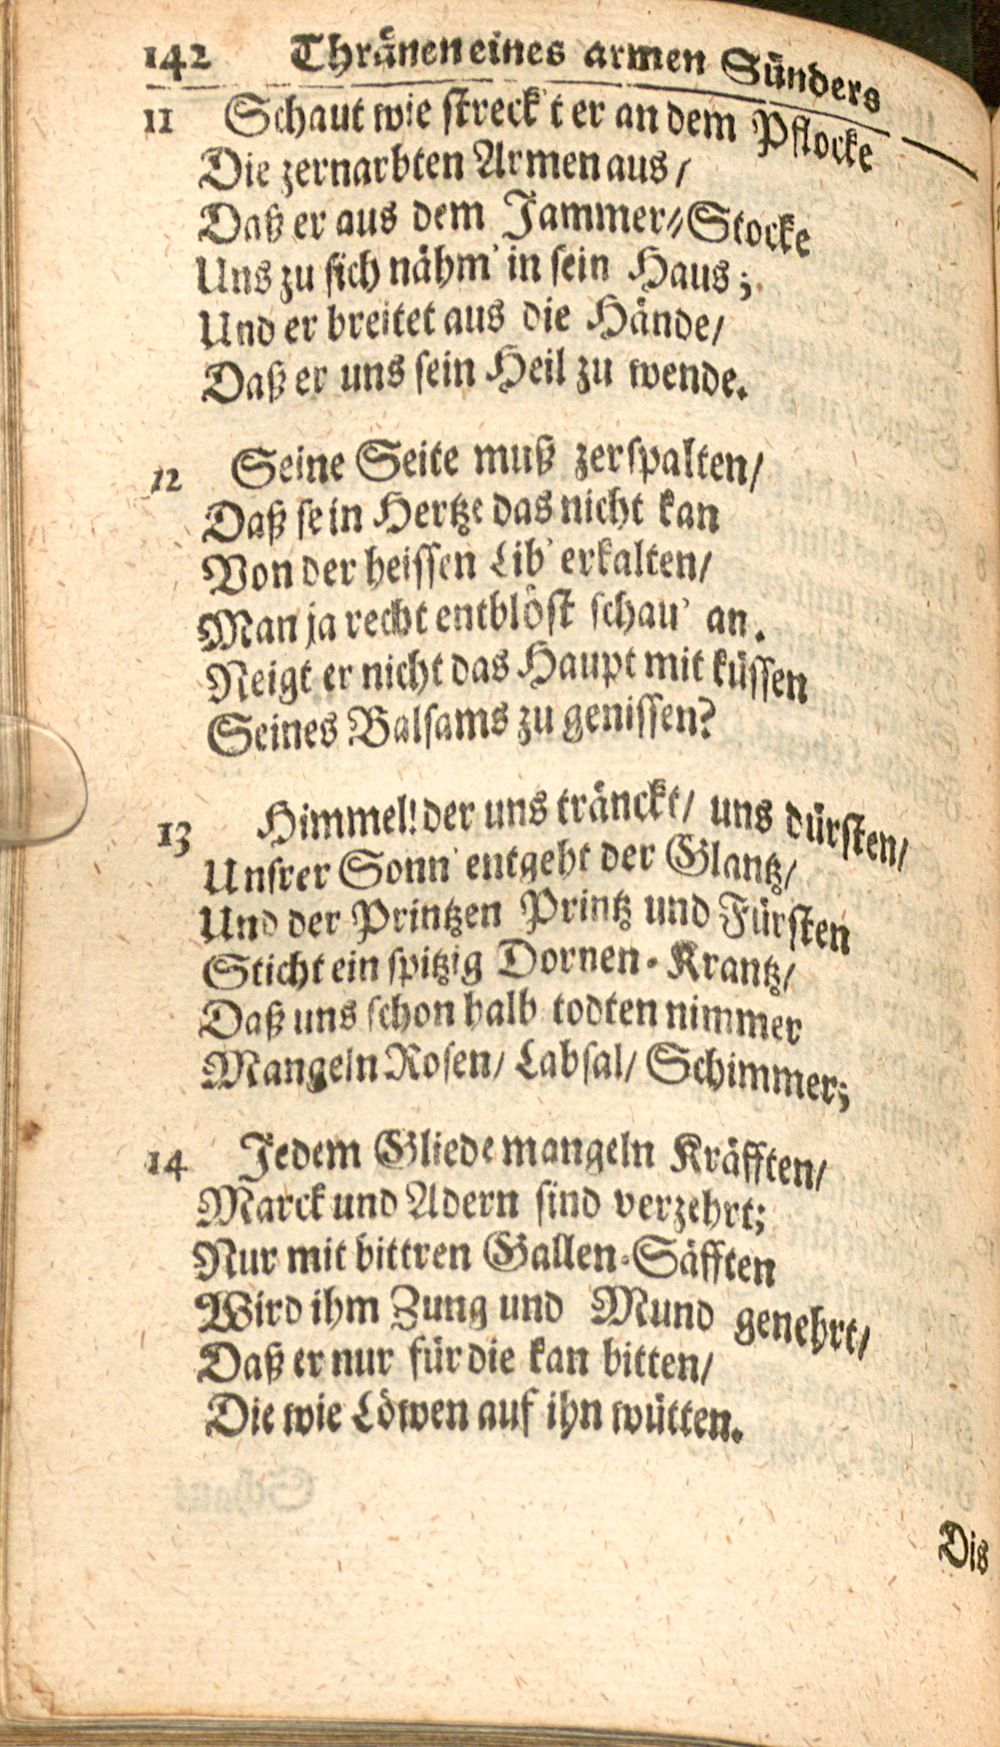 142 Thränen eines armen Sünders
11 Schaut wie streck't er an dem Pflocke
Die zernarbten Armen aus /
Daß er aus dem Jammer-Stocke
Uns zu sich nähm' in sein Haus;
Und er breitet aus die Hände /
Daß er uns sein Heil zu wende.
12 Seine Seite muß zerspalten /
Daß sein Hertze das nicht kan
Von der heissen Lib' erkalten /
Man ja recht entblöst schau' an.
Neigt er nicht das Haupt mit küssen
Seines Balsams zu genissen?
13 Himmel! der uns tränckt / uns dürsten /
Unsrer Sonn' entgeht der Glantz /
Und der Printzen Printz und Fürsten
Sticht ein spitzig Dornen-Krantz /
Daß uns schon halb todten nimmer
Mangeln Rosen / Labsal / Schimmer;
14 Jedem Gliede mangeln Kräfften /
Marck und Adern sind verzehrt;
Nur mit bittren Gallen-Säfften
Wird ihm Zung und Mund genehrt /
Daß er nur für die kan bitten /
Die wie Löwen auf ihn wütten.
Dis